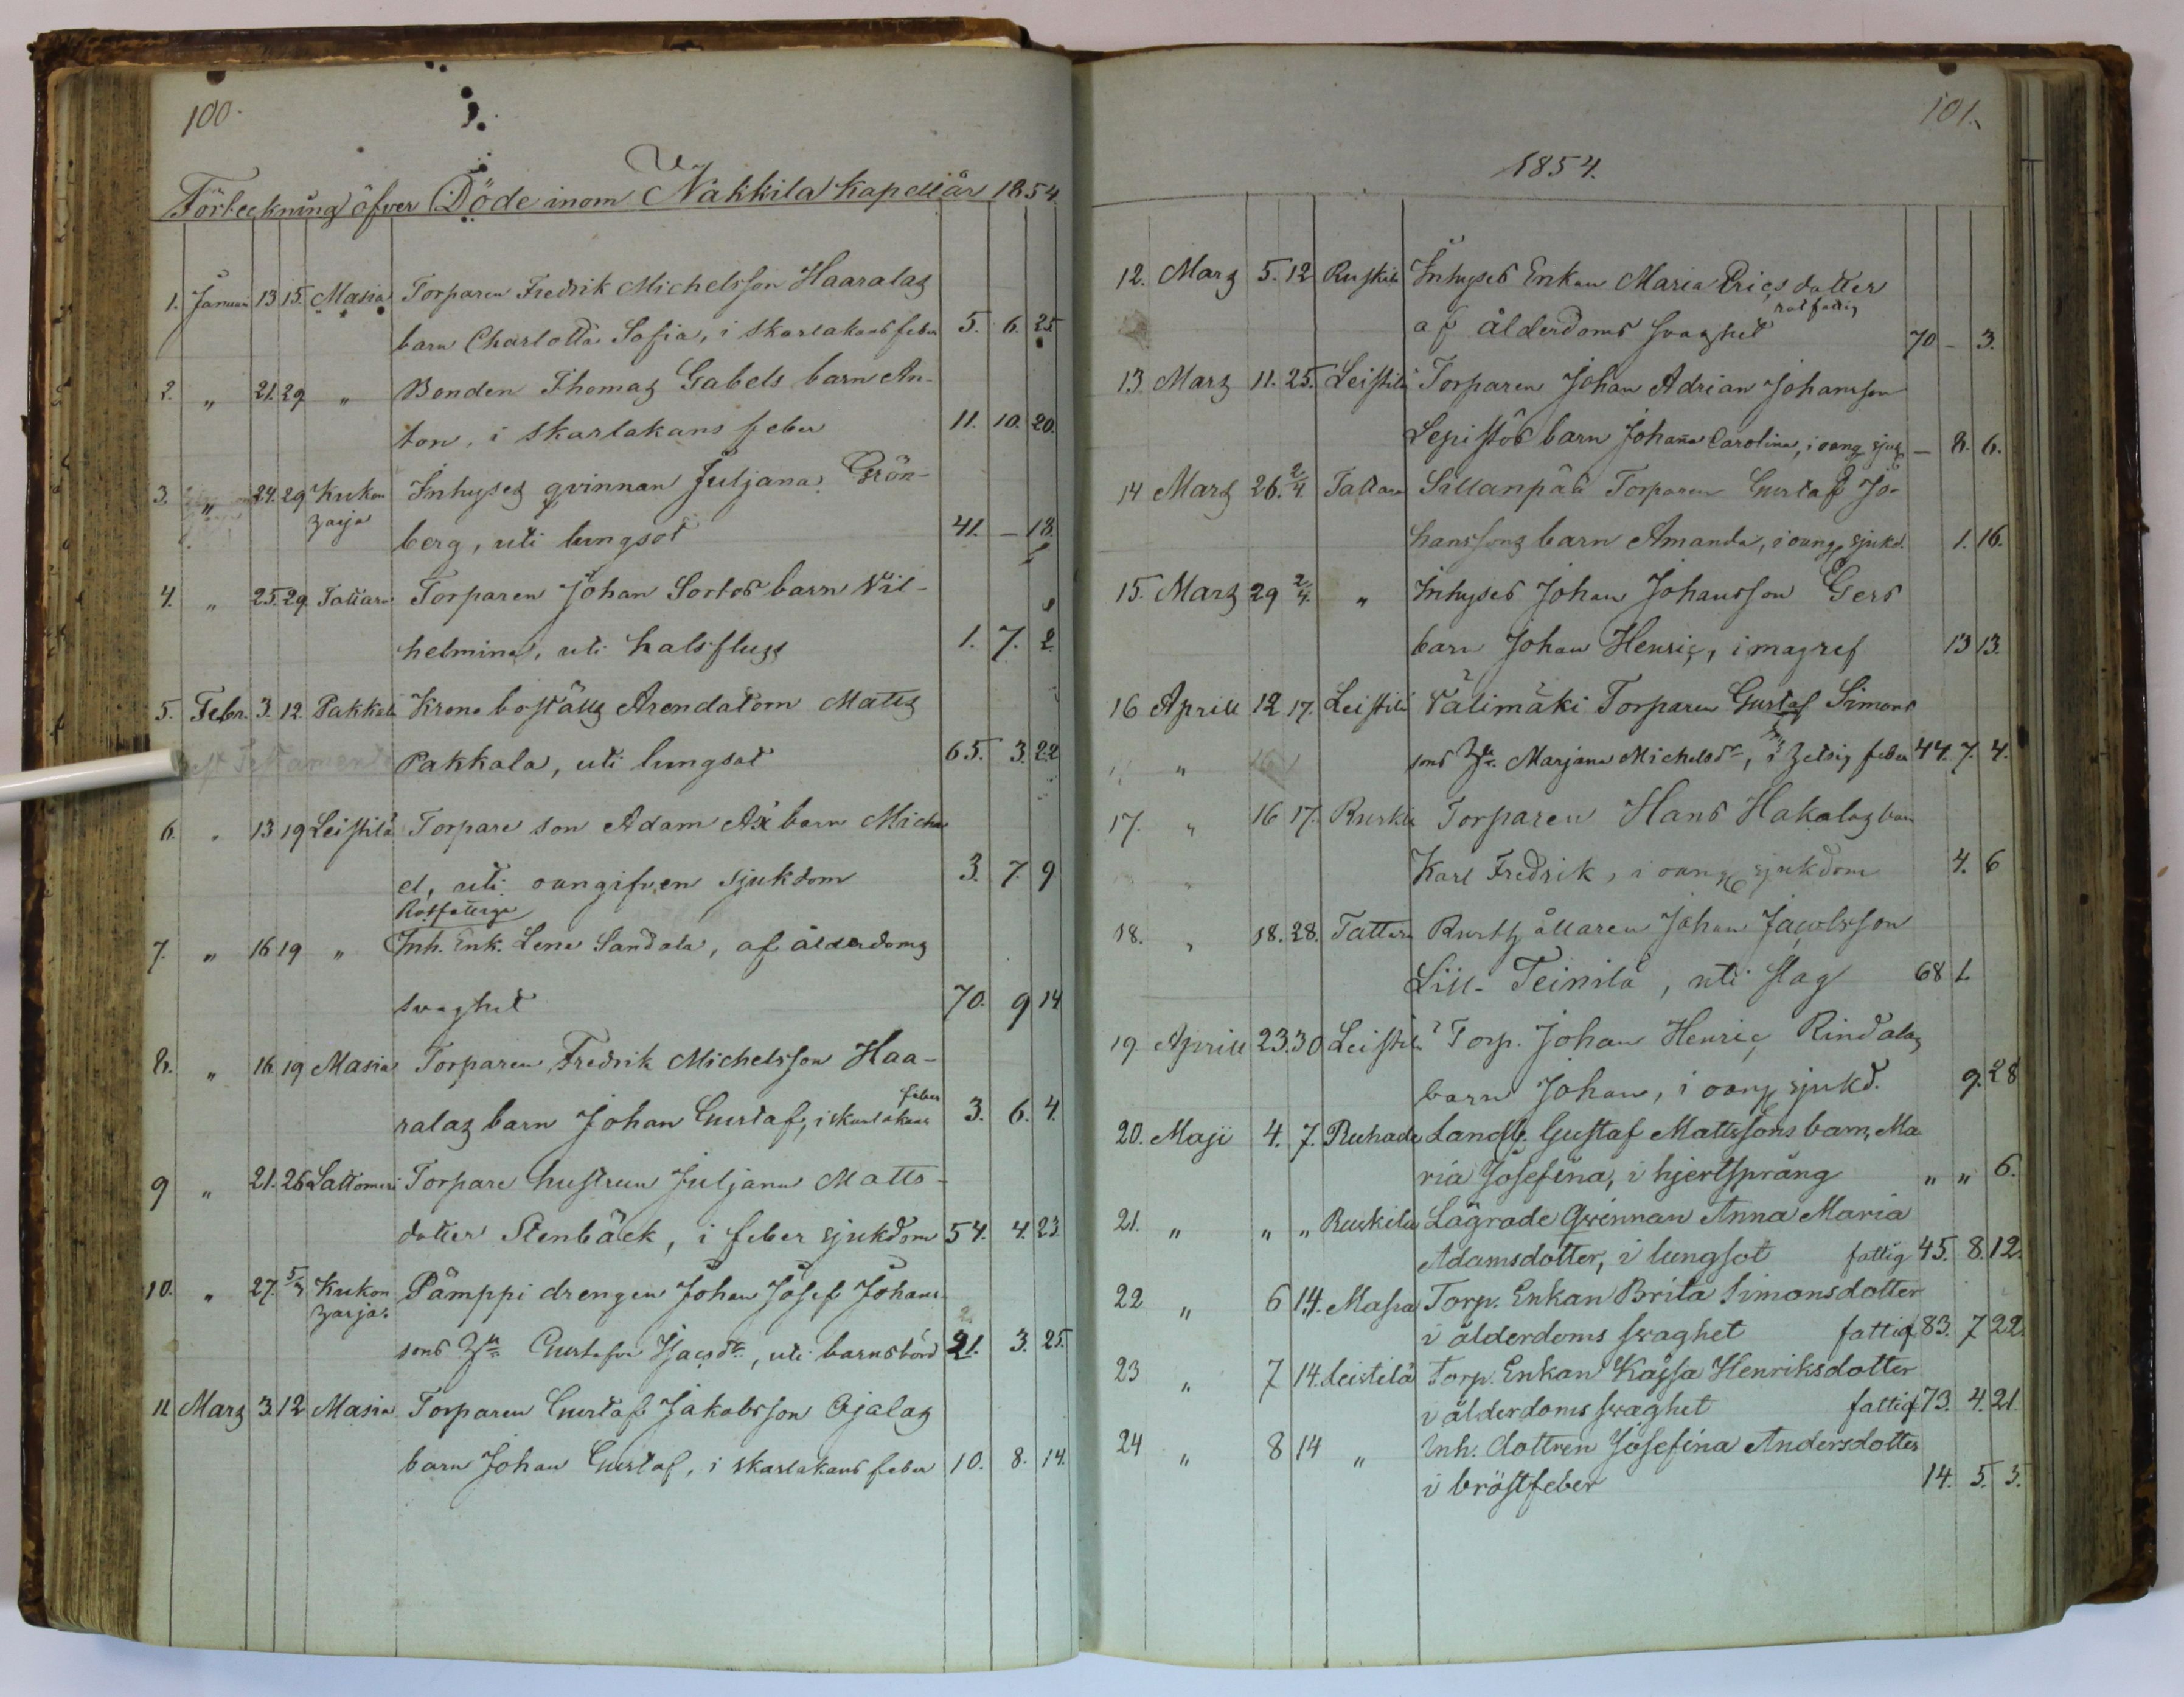 100.
Förteckning öfver Döde inom Nakkila Kapell år 1854.
1. Januari 13 15. Masia Torparen Fredrik Michelsson Haaralas
barn Charlotta Sofia, i skarlakans feber 5. 6. 25
2. „ 21. 29 „ Bonden Thomas Gabels barn An-
ton, i skarlakans feber 11. 10. 20.
3. „ 24. 29 Kukon Inhyses qvinnan Juljana Grön-
harja
berg, uti lungsot 41. – 18.
4. „ 25. 29. Tattara Torparen Johan Sortos barn Vil-
helmina, uti halsfluss 1. 7. 2
5. Febr. 3. 12. Pakkala Krono boställs Arendatorn Matts
Pakkala, uti lungsot 65. 3. 22
6. „ 13 19 Leistilä Torpare son Adam Ax barn Micha
el, uti oangifven sjukdom 3. 7. 9
Rotfattige
7. „ 16 19 „ Inh. Enk. Lena Sandala, af ålderdoms
svaghet 70. 9 14
8. „ 16 19 Masia Torparen Fredrik Michelsson Haa-
feber
ralas barn Johan Gustaf, i skarlakans 3. 6. 4.
9 „ 21. 26 Lattomeri Torpare hustrun Juljana Matts-
dotter Stenbäck, i feber sjukdom 54. 4. 23.
10. „ 27. 5/3 Kukon Pämppi drengen Johan Josef Johans-
harja.
sons Hu Gustafva Isacsdr, uti barnsbörd 21. 3. 25.
11 Mars 3. 12 Masia Torparen Gustaf Jakobsson Ojalas
barn Johan Gustaf, i skarlakans feber 10. 8. 14.
101.
1854.
12. Mars 5. 12 Ruskila Inhyses Enkan Maria Erics dotter
rotfattig
af ålderdoms svaghet 70 – 3.
13. Mars 11. 25. Leistilä Torparen Johan Adrian Johansson
Lepistös barn Johanna Carolina, i oang. sjuk. – 8. 6.
14 Mars 26. 2/4. Tattara Sillanpää Torparen Gustaf Jo-
hanssons barn Amanda, i oang. sjukd. 1. 16.
15. Mars 29 2/4. „ Inhyses Johan Johansson Gers
barn Johan Henric, i magref 13 13.
16 Aprill 12 17. Leistilä Välimäki Torparen Gustaf Simons
sons Hu. Marjana Michelsdr, i hetsig feber 44. 7. 4.
17. „ 16 17. Ruskila Torparen Hans Hakalas barn
Karl Fredrik, i oang. sjukdom 4. 6
18. „ 18. 28. Tattara Rusthållaren Johan Jacobsson
Lill-Teinilä, uti slag 68 1.
19 Aprill 23. 30 Leistilä Torp. Johan Henric Rindalas
barn Johan, i oang. sjukd. 9. 28
20. Maji 4. 7. Ruhade Landb. Gustaf Mattssons barn, Ma
ria Josefina, i hjertsprång „ „ 6.
21. „ „ „ Ruskila Lägrade Qwinnan Anna Maria
Adamsdotter, i lungsot fattig 45. 8. 12.
22 „ 6 14. Masia Torp. Enkan Brita Simonsdotter
i ålderdoms swaghet fattig 83. 7 22.
23 „ 7 14. Leistilä Torp. Enkan Kajsa Henriksdotter
i ålderdoms swaghet fattig 73. 4. 21.
24 „ 8 14 „ Inh. dottren Josefina Andersdotter
i bröstfeber 14. 5. 5.